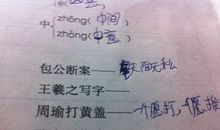 中 zhōng(中间)
zhòng(中意)
包公断案——铁面无私
王羲之写字——
周瑜打黄盖——一个愿打,一个愿挨